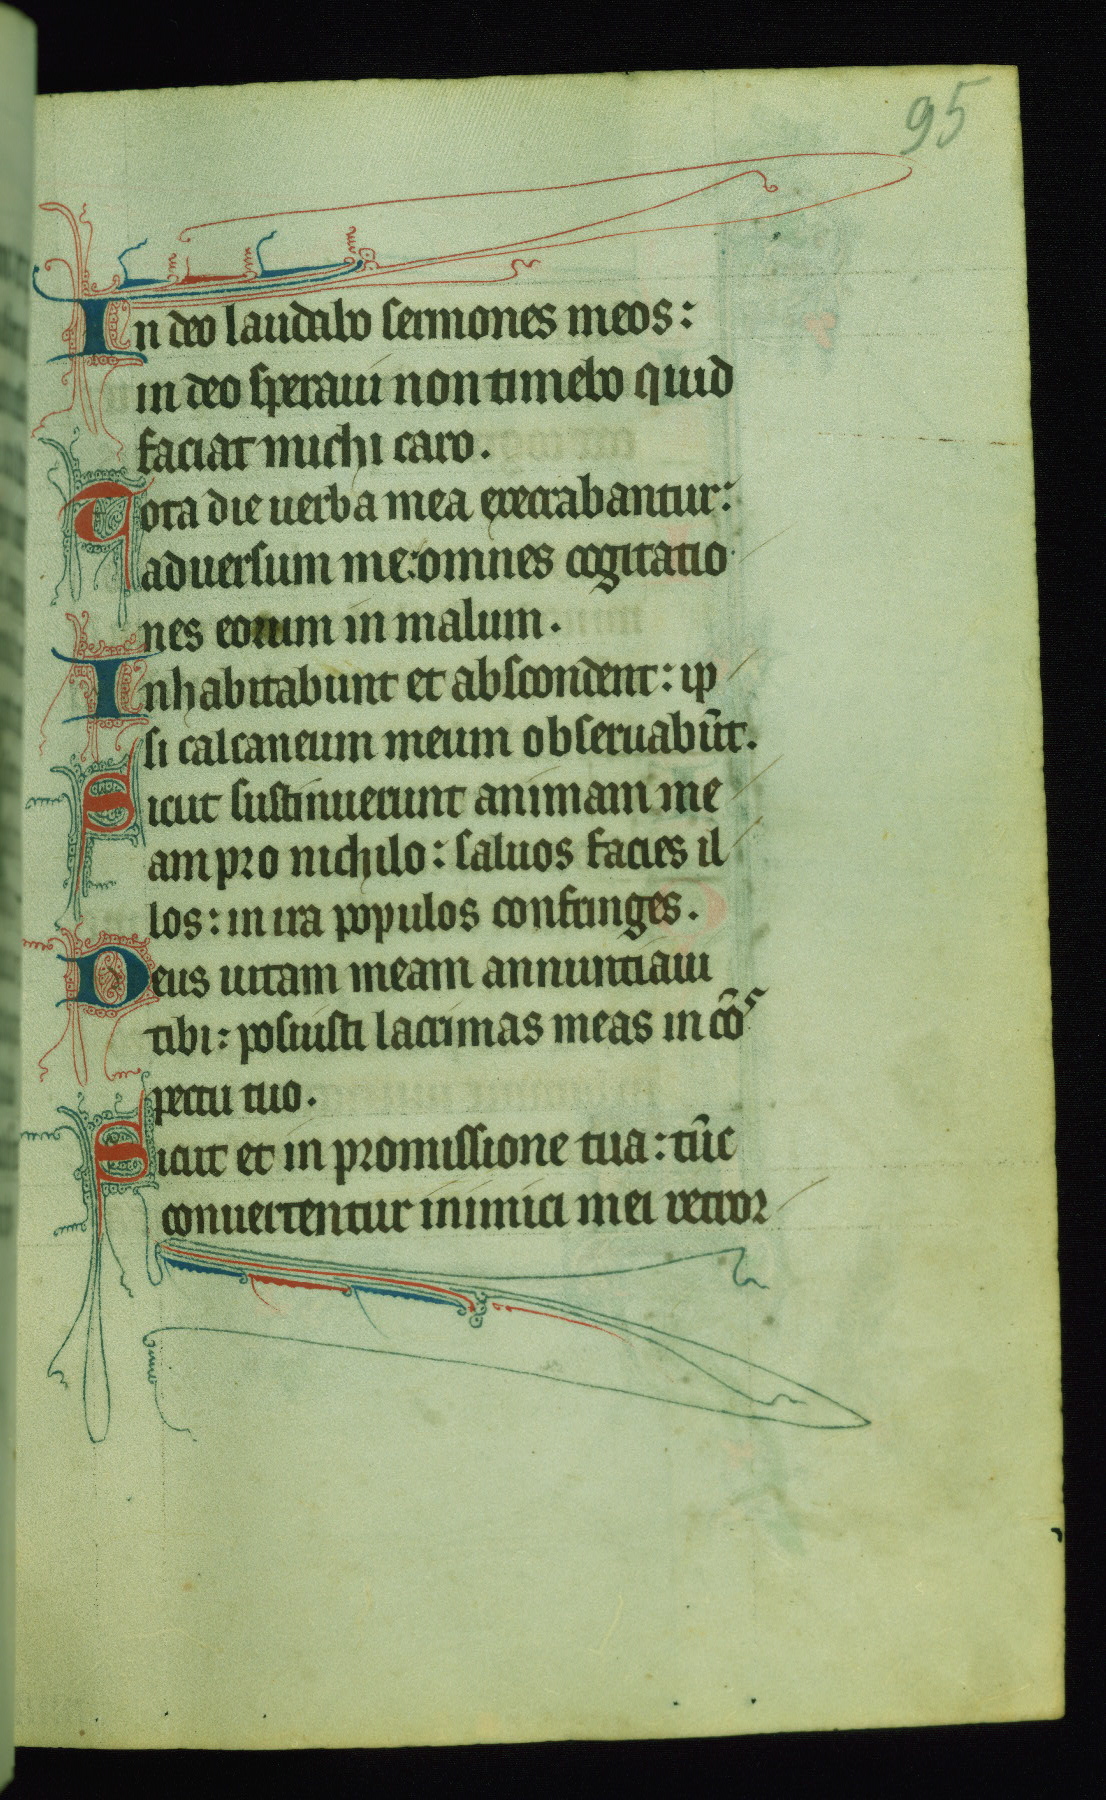 95
In deo laudabo sermones meos:
in deo speraui non timebo quid
faciat michi caro.
Tota die uerba mea execrabantur:
aduersum me: omnes cogitatio
nes eorum in malum.
Inhabitabunt et abscondent: ip
si calcaneum meum obseruabūt.
Sicut sustinuerunt animam me
am pro nichilo: saluos facies il
los: in ira populos confringes.
Deus uitam meam annuntiaui
tibi: posuisti lacrimas meas in cōs
pectu tuo.
Sicut et in promissione tua: tūc
conuertentur inimici mei retror